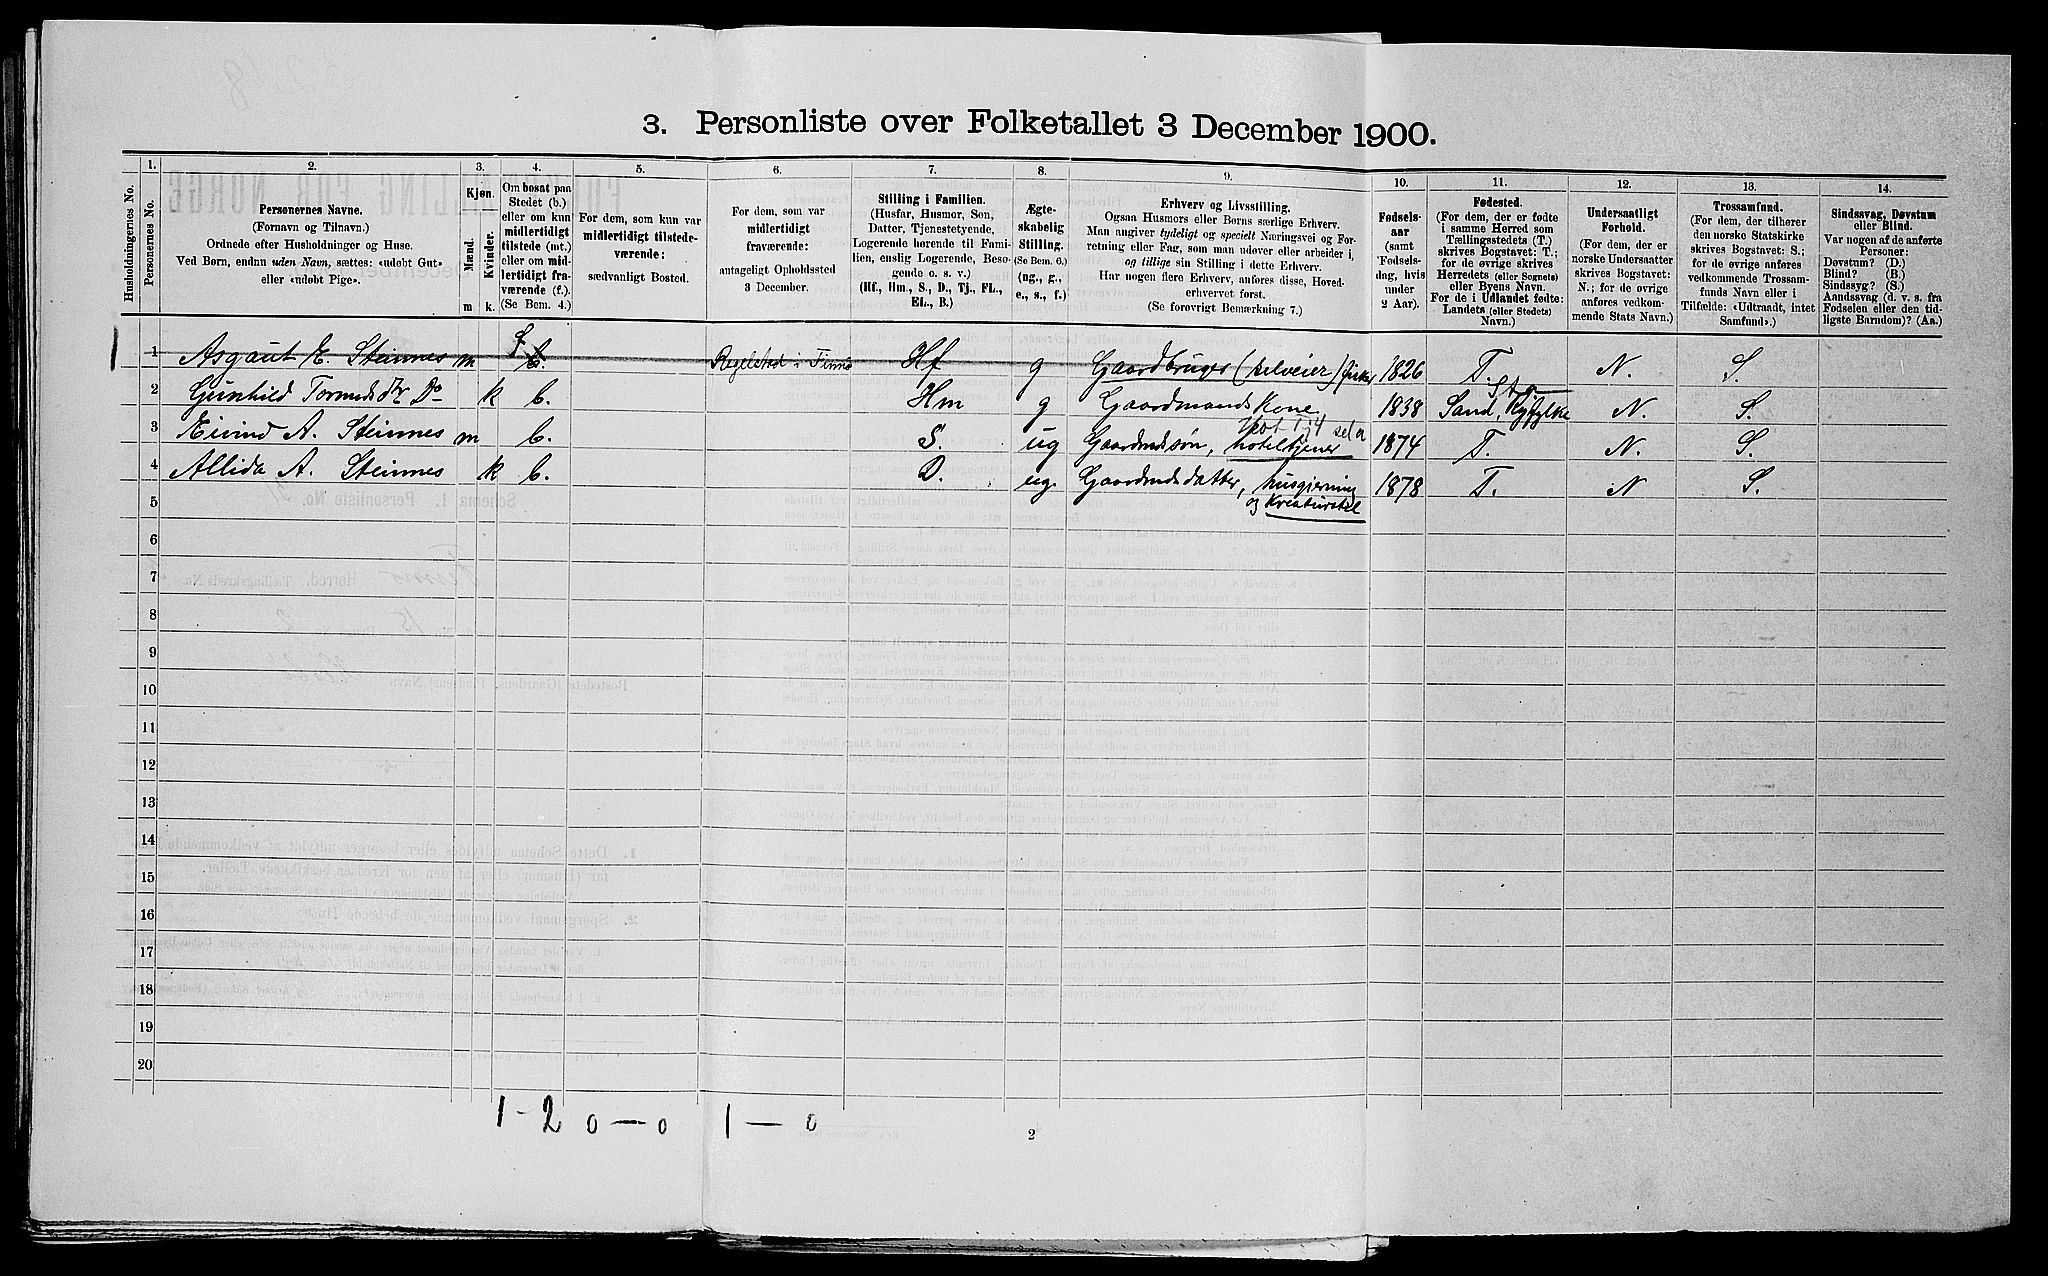 3. Personliste over Folketallet 3 December 1900.
Husholdningernes No.
1.
Personernes No.
2.
Personernes Navne.
(Fornavn og Tilnavn.)
Ordnede efter Husholdninger og Huse.
Ved Børn, endnu uden Navn, sættes: «udøbt Gut»
eller «udøbt Pige».
3.
Kjøn.
Mænd.
Kvinder.
m k.
4.
Om bosat paa
Stedet (b.)
eller om kun
midlertidigt
tilstede (mt.)
eller om mid-
lertidigt fra-
værende (f.).
(Se Bem. 4.)
5.
For dem, som kun var
midlertidigt tilstede-
værende:
sædvanligt Bosted.
6.
For dem, som var
midlertidigt
fraværende:
antageligt Opholdssted
3 December.
7.
Stilling i Familien.
(Husfar, Husmor, Søn,
Datter, Tjenestetyende,
Logerende hørende til Fami-
lien, enslig Logerende, Besø-
gende o. s. v.)
(Hf., Hm., S., D., Tj., FL.,
EL., B.)
8.
Ægte-
skabelig
Stilling.
(Se Bem. 6.)
(ug., g.,
e., s., f.)
9.
Erhverv og Livsstilling.
Ogsaa Husmors eller Børns særlige Erhverv.
Man angiver tydeligt og specielt Næringsvei og For-
retning eller Fag, som man udøver eller arbeider i,
og tillige sin Stilling i dette Erhverv.
Har nogen flere Erhverv, anføres disse, Hoved-
erhvervet først.
(Se forøvrigt Bemærkning 7.)
10.
Fødsels-
aar
(samt
Fødsels-
dag, hvis
under
2 Aar).
11.
Fødested.
(For dem, der er fødte
i samme Herred som
Tællingsstedets (T.)
skrives Bogstavet: T.;
for de øvrige skrives
Herredets (eller Sognets)
eller Byens Navn.
For de i Udlandet fødte:
Landets (eller Stedets)
Navn.)
12.
Undersaatligt
Forhold.
(For dem, der er
norske Undersaatter
skrives Bogstavet:
N.; for de øvrige
anføres vedkom-
mende Stats Navn.)
13.
Trossamfund.
(For dem, der tilhører
den norske Statskirke
skrives Bogstavet: S.;
for de øvrige anføres
vedkommende Trossam-
funds Navn eller i
Tilfælde: «Udtraadt, intet
Samfund».)
14.
Sindssvag, Døvstum
eller Blind.
Var nogen af de anførte
Personer:
Døvstum? (D.)
Blind? (B.)
Sindssyg? (S.)
Aandssvag (d. v. s. fra
Fødselen eller den tid-
ligste Barndom)? (Aa.)
1 1 Asgaut E. Steinnes m f b. i Finnø Hf g Gaardbruger (selveier) fisker 1826 T. N. S.
2 Gunhild Tormodsdtr Do k b. Hm g Gaardmands Kone 1838 Sand, Ryfylke N. S.
3 Eivind A. Steinnes m b. S. ug Gaardmdssøn, hoteltjener 1874 T. N. S.
4 Allida A. Steinnes k b. D. ug. Gaardmdsdatter, husgjerning 1878 T. N S.
og Kreaturstel
5
6
7
8
9
10
11
12
13
14
15
16
17
18
19
20
1 - 2 0 — 0 1 — 0
2